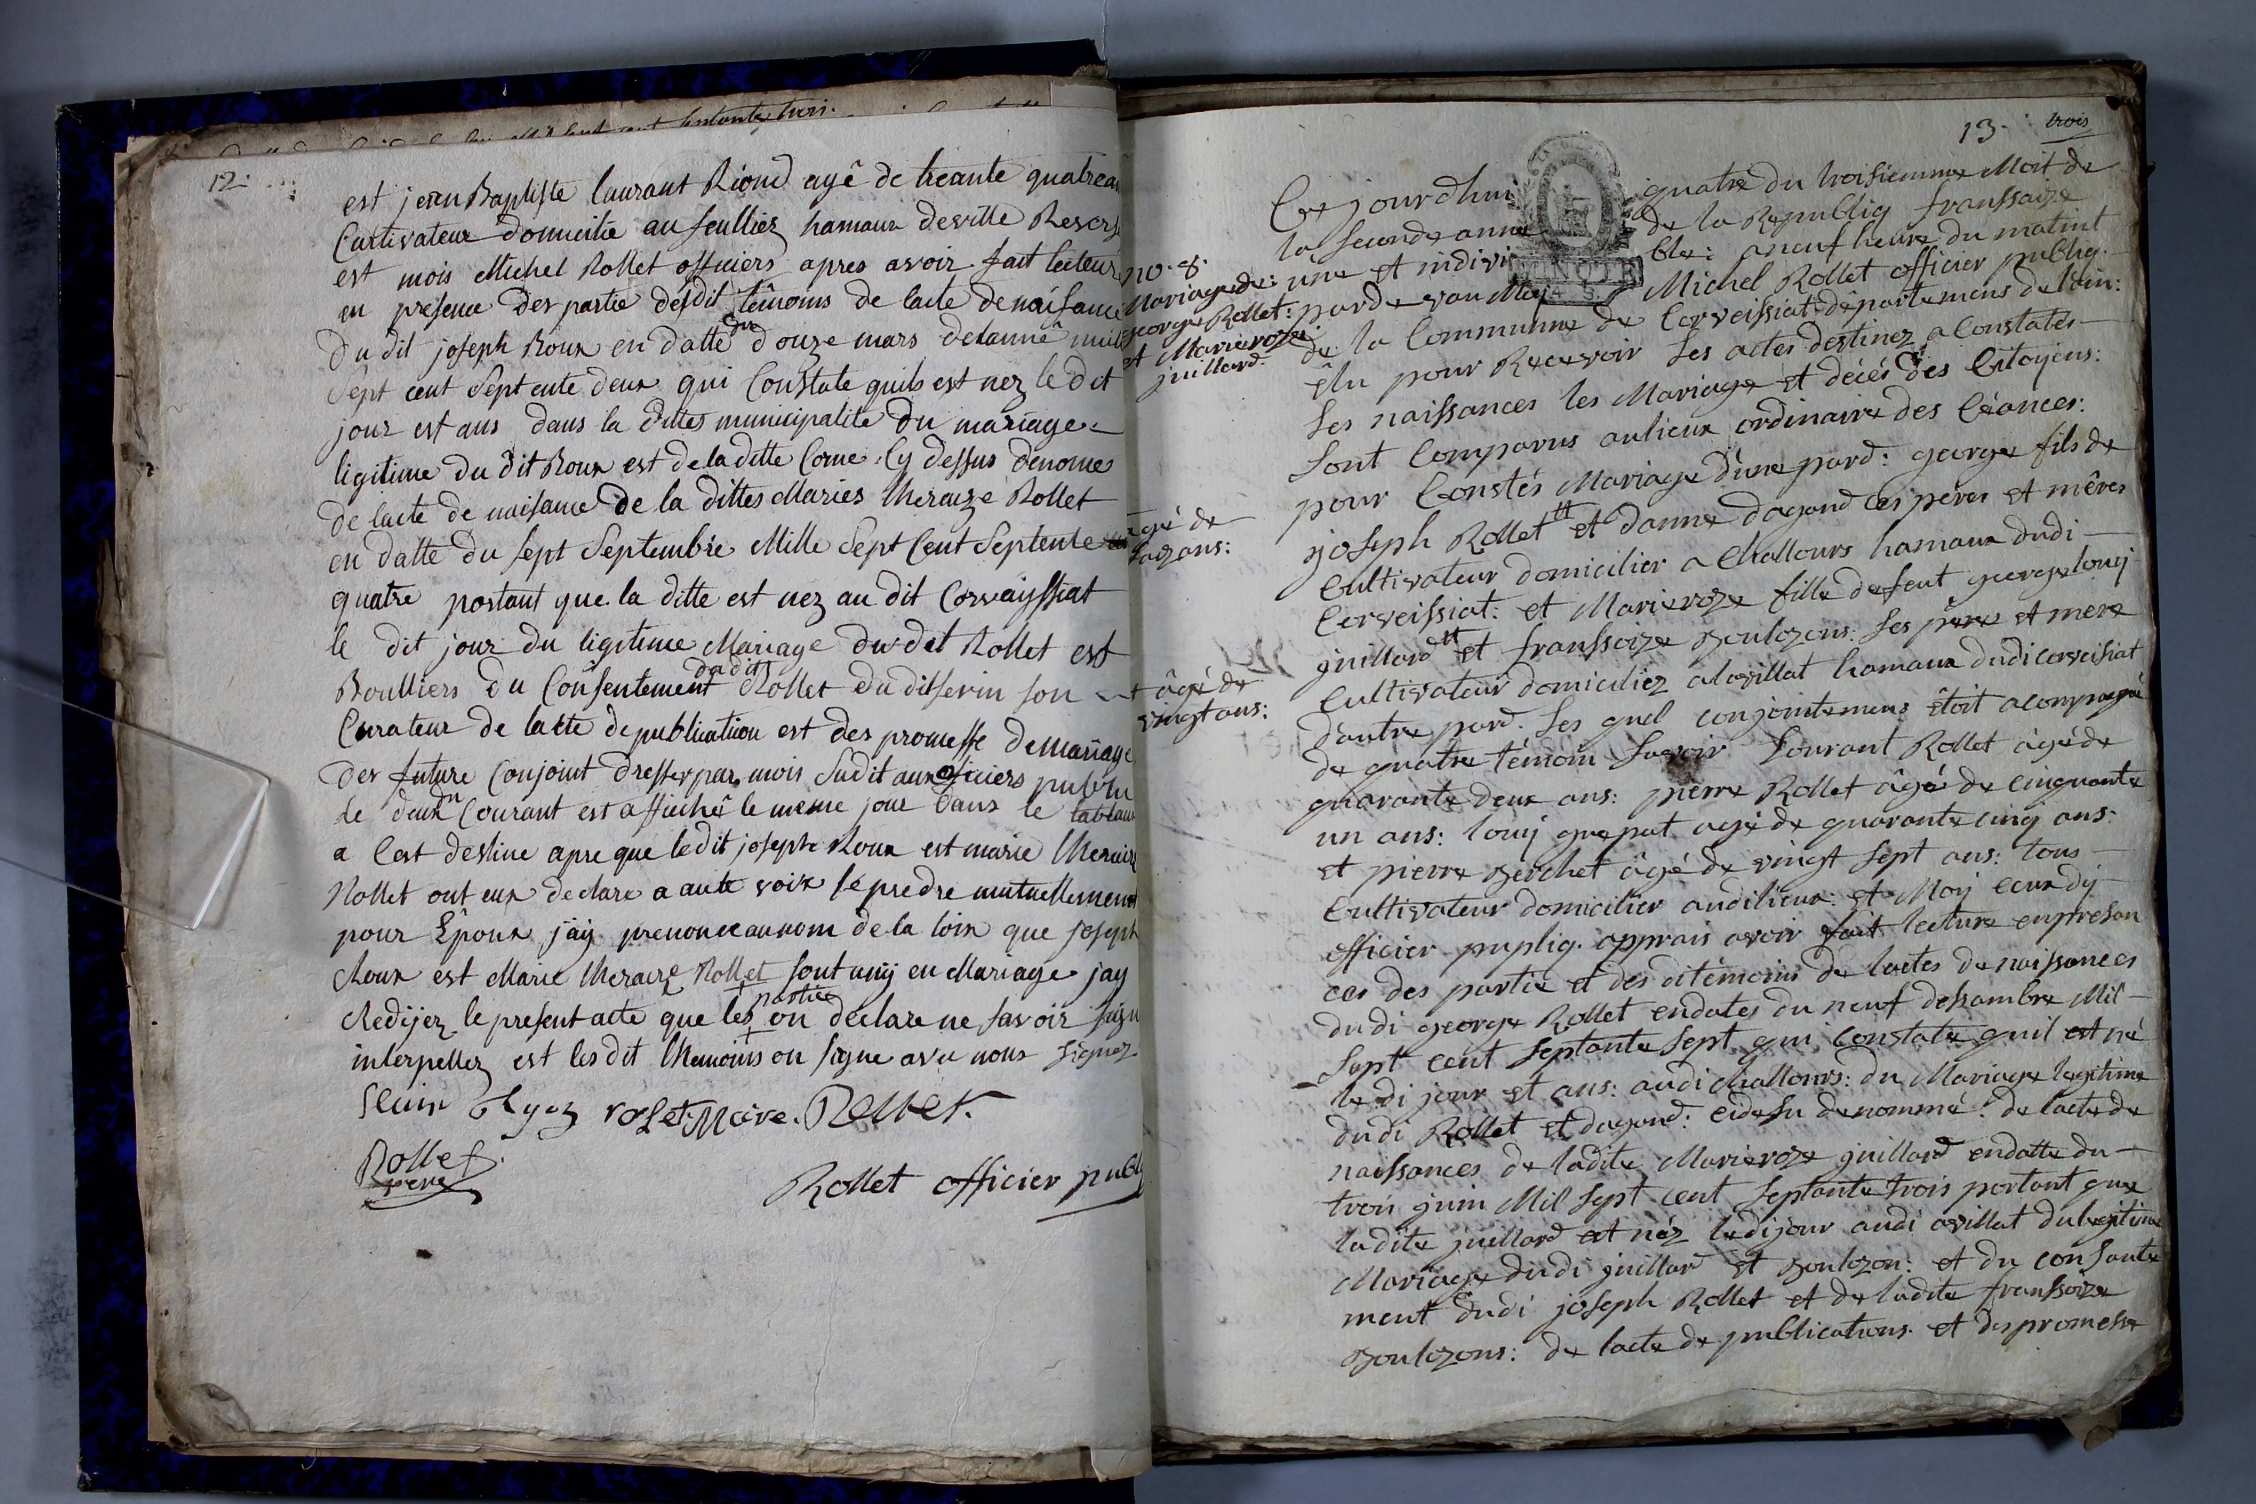 12
est jean Baptiste laurant Rioud agê de treante quatre an
Cultivateur domicitie au feulliez hamaux deville Revers
est mois Michel Rollet officiers apres avoir fait lecteur
en presence des partie desdit têmoins de lacte de naisance
du dit joseph Roux en datte du douze mars delannê mil
Sept cent Septente deux qui Constate quils est nez le dit
jour est ans dans la dittes municipalite du mariage
ligitime du dit Roux est de la ditte Corne Cy dessus denome
de lacte de naisance de la dittes Maries theraize Rollet
en datte du sept Septembre Mille Sept Cent Septente
quatre portant que la ditte est nez au dit Corvayssiat
le dit jour du ligitime Mariage du dit Rollet est
Boulliers du Consentement du dit Rollet du dit ferin son
Curateur de lacte de publication est des promesse de mariage
des future Conjoint dresser par mois Sudit aux oficiers public
le deux Courant est affiché le meme jour dans le tableau
a Cest destine apre que le dit joseph Roux est marie theraize
Rollet ont eux declare a aute voix se predre mutuellement
pour Êpoux jay prenonce au nom de la loix que joseph
Roux est Marie theraize Rollet sont unij en Mariage jay
Redijez le present acte que les partie on declare ne savoir sign
interpellez est les dit themoins on signe avec nous signez
rolet Maire. Rollet
Rollet
pere
Rollet officier publ
13. trois
no. 8.
Mariage de:
george Rollet:
et Marieroze
juillard.
Ce jourdhui quatre du troisiemme Moit de
la seconde anne de la Republiq franssaize
MINUTE
une et indivisible: a neuf heure du matint
par de van Moy Michel Rollet officier publiq.
de la Communne de Corveissiat departemens de lain:
êlu pour Recevoir les actes destinez a Constater
les naissances les Mariage et décés des Citoyens:
sont Comparus aulieux ordinaire des Céances:
pour Constés Mariage dune pard: george fils de
joseph Rollet tt et danne dagand ces pères et mêres
âgé de
ans:
Cultivateur domicilier a Challours hamaux dudi
Corveissiat: et Marieroze fille de feut george louij
guillard tt et franssoize Boulozons: ses père et mere
âgé de
vingt ans:
Cultivateur domiciliez alavillat hamaux dudi corveisiat
dautre pard. Les quel conjointemens êtoit acompagné
de quatre témoin Savoir Lourant Rollet âgé de
quarante deux ans: pierre Rollet âgé de cinquante
un ans: louij guepat agé de quarante cinq ans:
et pierre Berchet âgé de vingt sept ans: tous
Cultivateur domicilier audilieux: et Moy ceux dy
officier puplig. apprais avoir fait lecture enpresan
ces des partie et des di témoins de lactes de naissances
dudi george Rollet endates du neuf dessambre Mil
sept cent septante sept qui Constate quil est né
le di jour et ans: audi challours: du Mariage legitime
dudi Rollet et dagand: cidesu denommé: de lacte de
naissances de ladite Marieroze guillard endatte du
trois juin Mil sept cent septante trois portant que
ladite juillard est néz ledijour audi avillat du legitime
Mariage dudi juillard et Boulozon: et du consante
ment dudi joseph Rollet et de ladite franssoize
Boulozons: de lacte de publications et des promesse